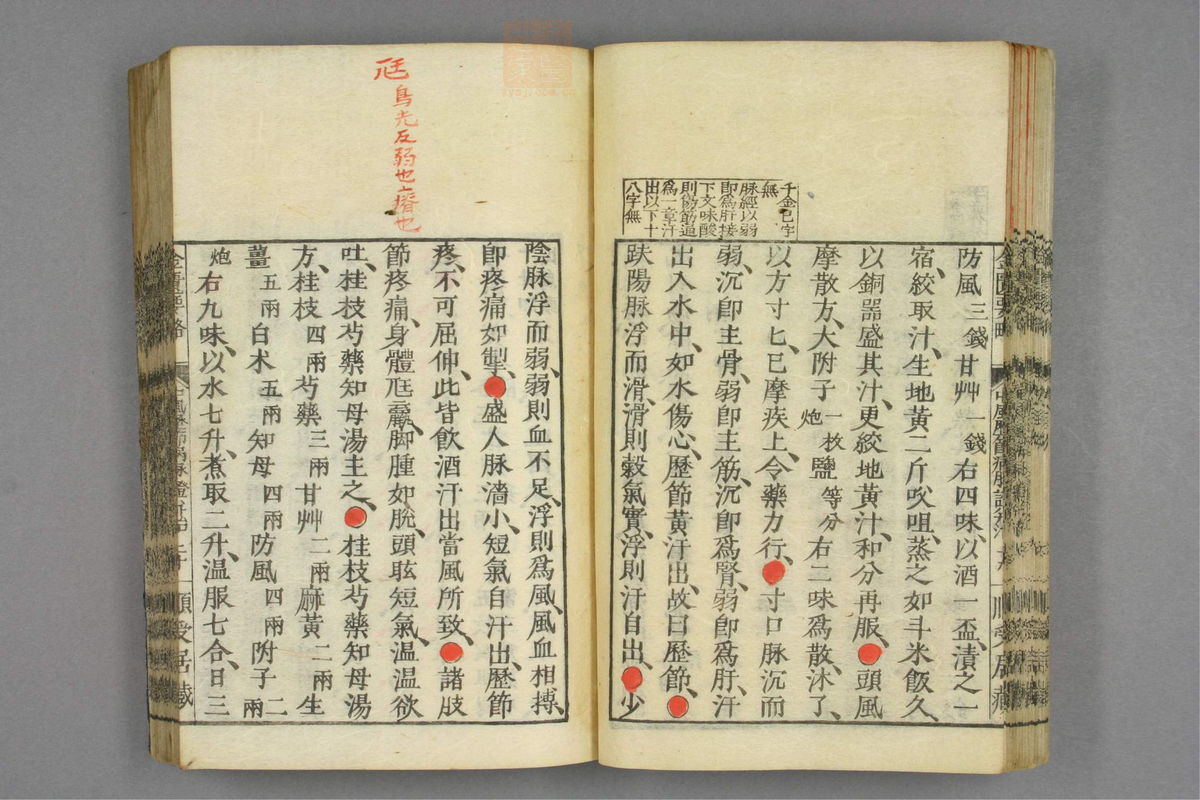 千金已字
無
脉經以弱
即爲肝接
下文味酸
則傷筋逼
爲一章汗
出以下十
八字無
防風三錢甘艸一錢右四味以酒一盃漬之一
宿絞取汁生地黃二斤㕮咀蒸之如斗米飯久
以銅器盛其汁更絞地黃汁和分再服頭風
摩散方大附子一枚炮鹽等分右二味爲散沐了
以方寸匕巳摩疾上令藥力行寸口脉沉而
弱沉卽主骨弱卽主筋沉卽爲腎弱卽爲肝汗
出入水中如水傷心歷節黃汗出故曰歷節
趺陽脉浮而滑滑則穀氣實浮則汗自出少
尩烏光反弱也瘠也
陰脉浮而弱弱則血不足浮則爲風風血相摶
卽疼痛如掣盛人脉濇小短氣自汗出歷節
疼不可屈伸此皆飲酒汗出當風所致諸肢
節疼痛身體尪羸脚腫如脫頭眩短氣温温欲
吐桂枝芍藥知母湯主之桂枝芍藥知母湯
方桂枝四兩芍藥三兩甘艸二兩麻黃二兩生
薑五兩白朮五兩知母四兩防風四兩附子二兩
炮右九味以水七升煮取二升温服七合日三